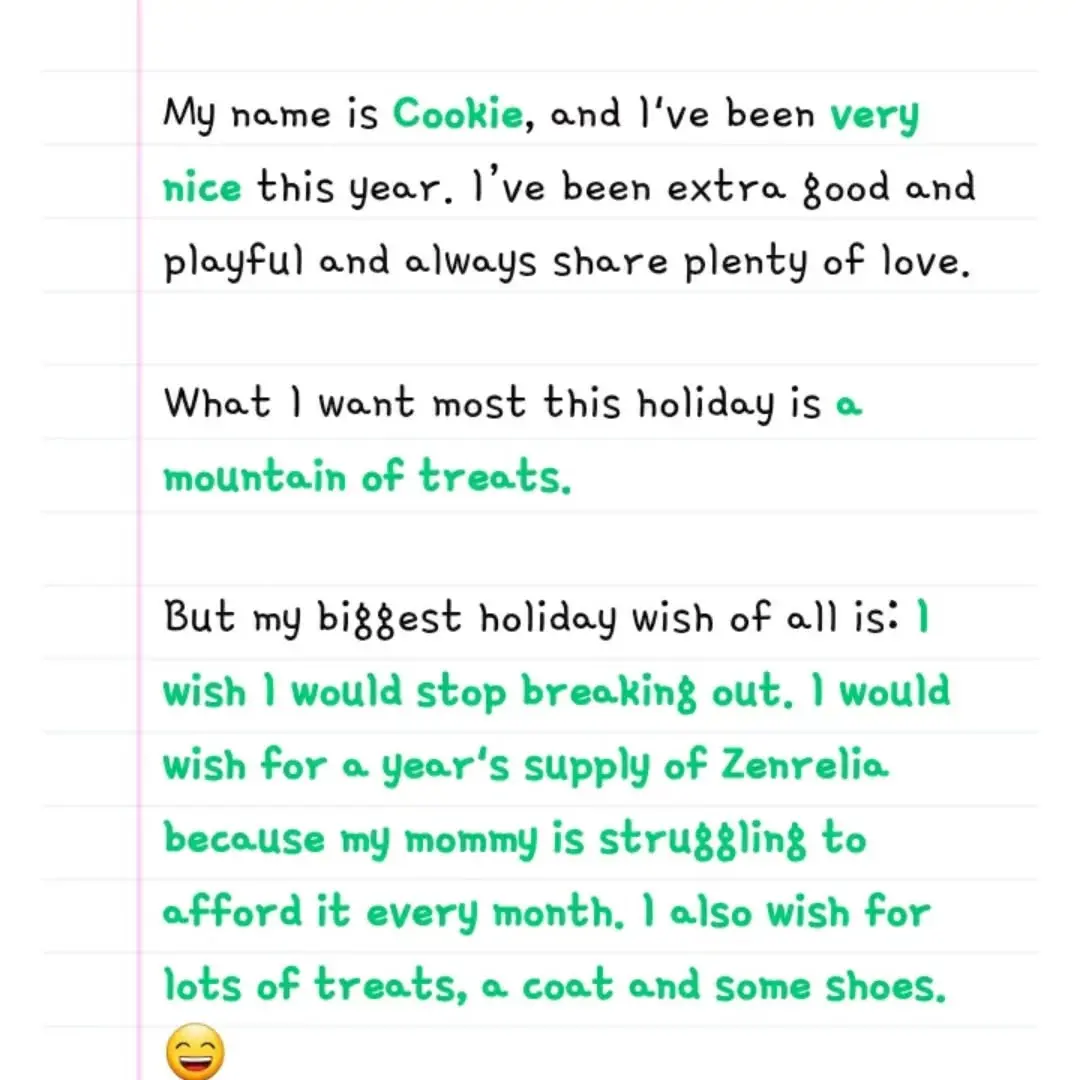 My name is Cookie, and I've been very
nice this year. I’ve been extra good and
playful and always share plenty of love.
What I want most this holiday is a
mountain of treats.
But my biggest holiday wish of all is: I
wish I would stop breaking out. I would
wish for a year's supply of Zenrelia
because my mommy is struggling to
afford it every month. I also wish for
lots of treats, a coat and some shoes.
😄